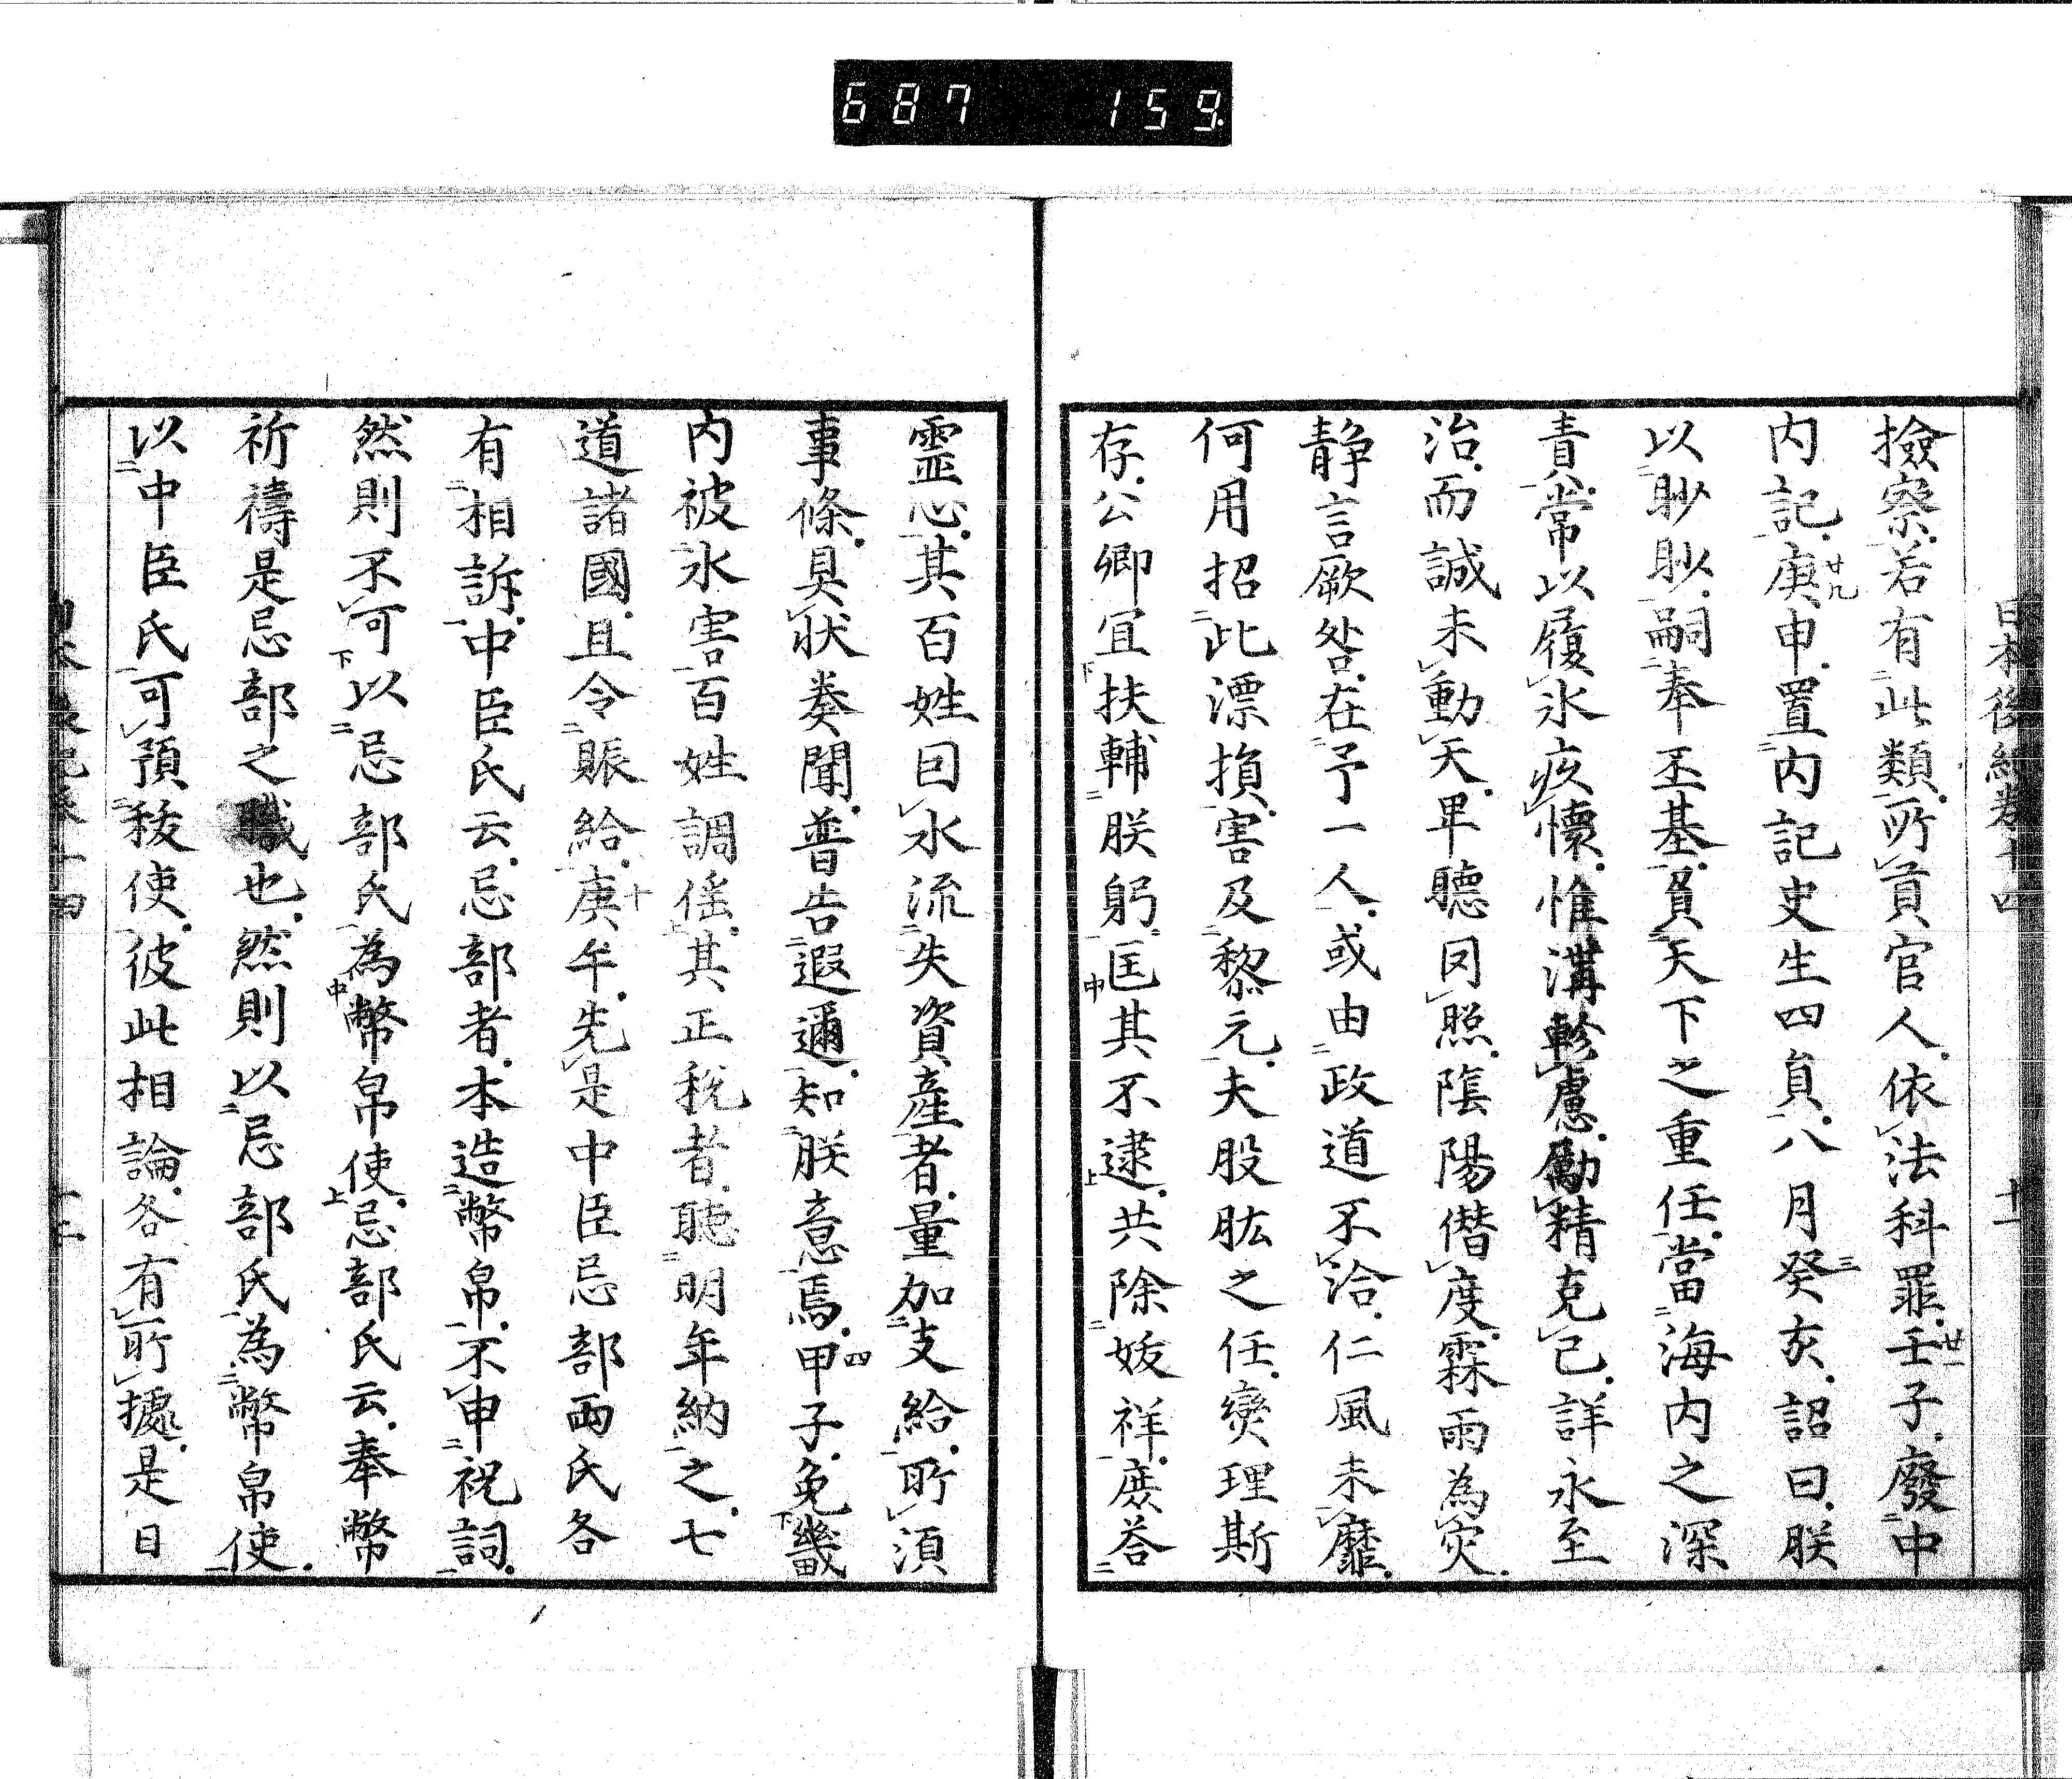 687 159
日本後紀卷十四 十一
撿察若有此類所貢官人依法科罪壬子廢中
内記庚申置内記史生四員八月癸亥詔曰朕
以眇眇嗣奉丕基負天下之重任當海内之深
責常以履氷疚懷惟溝軫慮勵精克己詳求至
治而誠未動天卑聽罔照隂陽僭度霖雨為灾
静言厥咎在予一人或由政道不洽仁風未靡
何用招此漂損害及黎元夫股肱之任燮理斯
存公卿宜扶輔朕躬匡其不逮共除妖祥庶荅
霊心其百姓因水流失資産者量加支給所須
事條具状奏聞普告遐邇知朕意焉甲子免畿
内被水害百姓調徭其正税者聴明年納之七
道諸國且令賑給庚午先是中臣忌部兩氏各
有相訴中臣氏云忌部者本造幣帛不申祝詞
然則不可以忌部氏為幣帛使忌部氏云奉幣
祈禱是忌部之職也然則以忌部氏為幣帛使
以中臣氏可預秡使彼此相論各有所據是日